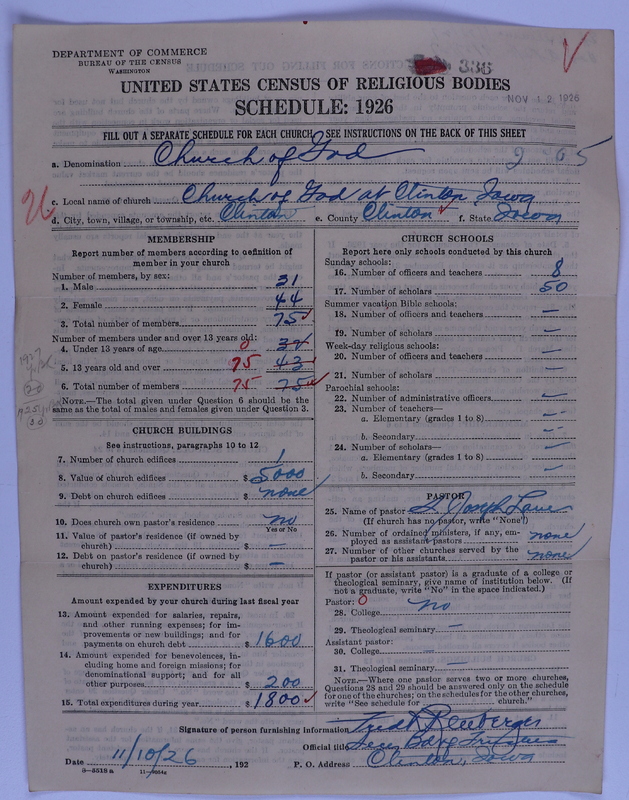 DEPARTMENT OF COMMERCE
BUREAU OF THE CENSUS
WASHINGTON
336
UNITED STATES CENSUS OF RELIGIOUS BODIES
NOV 12 1926
SCHEDULE: 1926
FILL OUT A SEPARATE SCHEDULE FOR EACH CHURCH. SEE INSTRUCTIONS ON THE BACK OF THIS SHEET
a. Denomination Church of God
2 65
c. Local name of church Church of God at Clinton Iowa
26
d. City, town, village, or township, etc. Clinton e. County Clinton f. State Iowa
MEMBERSHIP
Report number of members according to definition of
member in your church
Number of members, by sex:
1. Male 31
2. Female 44
3. Total number of members 75
Number of members under and over 13 years old:
4. Under 13 years of age 0
5. 13 years old and over 75 43
6. Total number of members 75 75
NOTE.—The total given under Question 6 should be the
same as the total of males and females given under Question 3.
CHURCH BUILDINGS
See instructions, paragraphs 10 to 12
7. Number of church edifices 1
8. Value of church edifices $ 5000
9. Debt on church edifices $ none
10. Does church own pastor's residence no
Yes or No
11. Value of pastor's residence (if owned by
church) $ —
12. Debt on pastor's residence (if owned by
church) $ —
EXPENDITURES
Amount expended by your church during last fiscal year
13. Amount expended for salaries, repairs,
and other running expenses; for im-
provements or new buildings; and for
payments on church debt $ 1600
14. Amount expended for benevolences, in-
cluding home and foreign missions; for
denominational support; and for all
other purposes $ 200
15. Total expenditures during year $ 1800
CHURCH SCHOOLS
Report here only schools conducted by this church
Sunday schools:
16. Number of officers and teachers 8
17. Number of scholars 50
Summer vacation Bible schools:
18. Number of officers and teachers —
19. Number of scholars —
Week-day religious schools:
20. Number of officers and teachers —
21. Number of scholars —
Parochial schools:
22. Number of administrative officers —
23. Number of teachers—
a. Elementary (grades 1 to 8) —
b. Secondary —
24. Number of scholars— —
a. Elementary (grades 1 to 8) —
b. Secondary —
PASTOR
25. Name of pastor Joseph
(If church has no pastor, write "None")
26. Number of ordained ministers, if any, em-
ployed as assistant pastors none
27. Number of other churches served by the
pastor or his assistants none
If pastor (or assistant pastor) is a graduate of a college or
theological seminary, give name of institution below. (If
not a graduate, write "No" in the space indicated.)
Pastor: 0
28. College no
29. Theological seminary —
Assistant pastor:
30. College —
31. Theological seminary —
NOTE.—Where one pastor serves two or more churches,
Questions 28 and 29 should be answered only on the schedule
for one of the churches; on the schedules for the other churches,
write "See schedule for church."
Signature of person furnishing information
Official title
Date 11/10/26, 192 P. O. Address Clinton, Iowa
8—5518 a